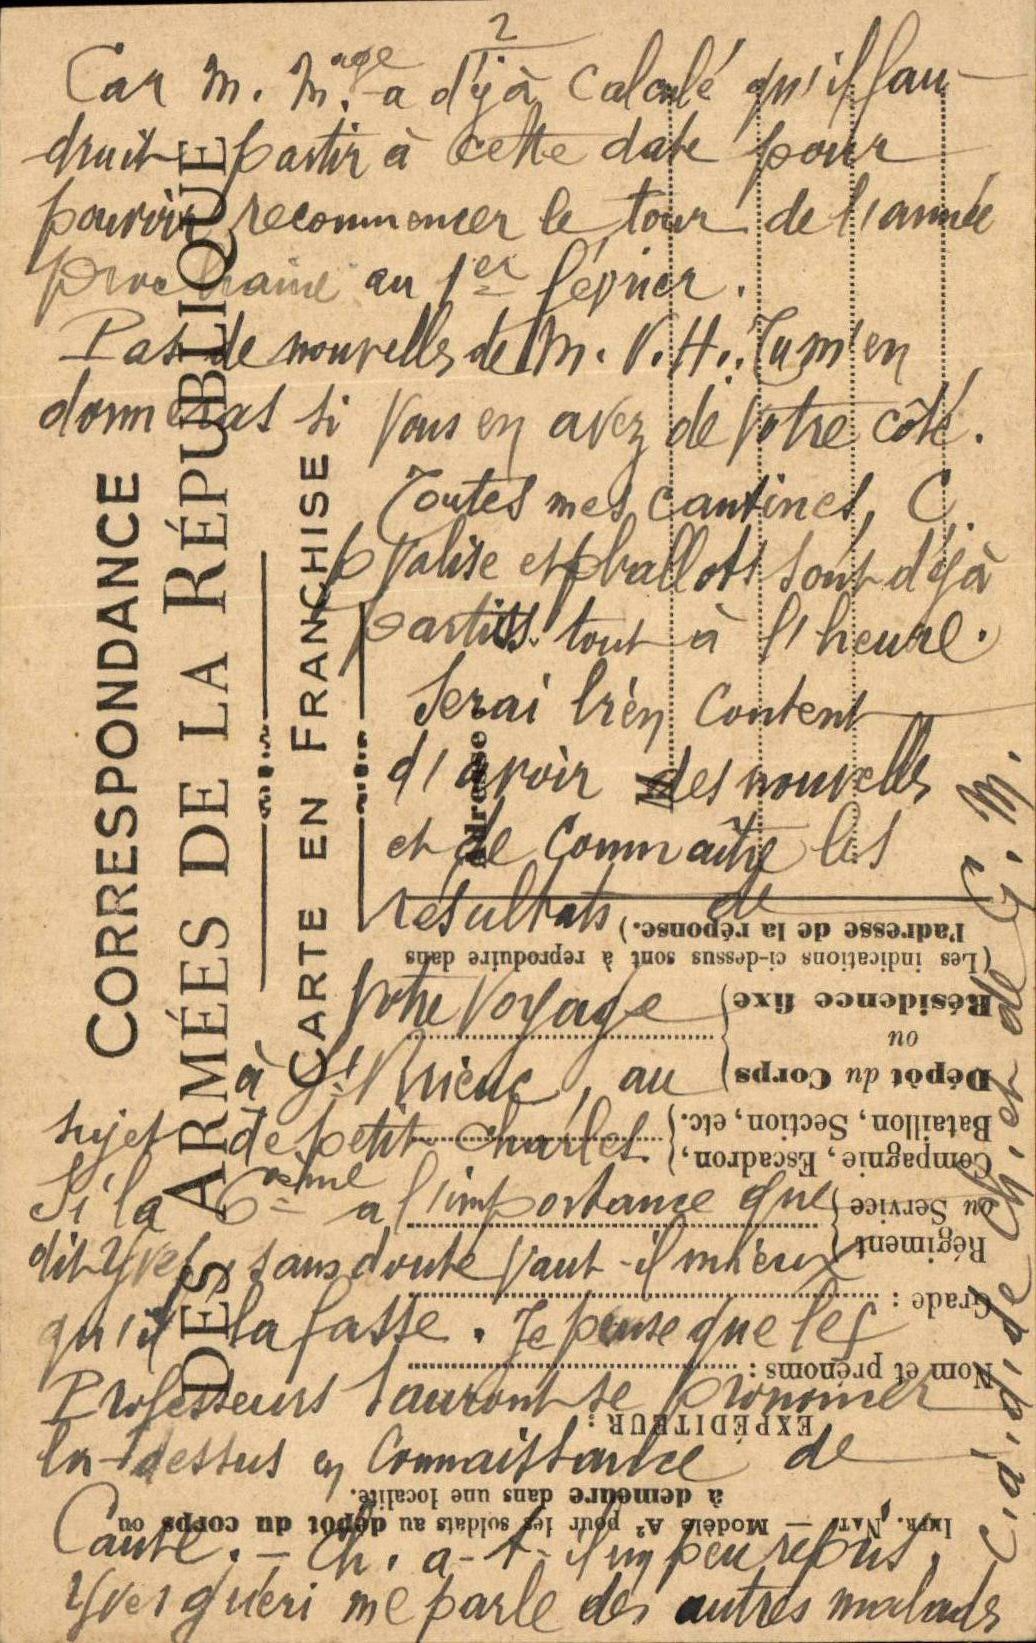 2
Car M. M.age a déjà calculé qu'il fau-
drait partir à cette date pour
pouvoir recommencer le tour de l'année
prochaine au 1er février.
Pas de nouvelles de M. V. H. Tu m'en
donneras si vous en avez de votre côté.
Toutes mes cantines, C.
valise et ballots sont déjà
partis tout à l'heure.
Serai bien content
d'avoir des nouvelles
et de connaître les
résultats de
votre voyage
à St Brieuc, au
sujet de petit Charles.
Si la 6ème a l'importance que
dit Yves, sans doute vaut-il mieux
qu'il la fasse. Je pense que les
Professeurs sauront se prononcer
là-dessus en connaissance de
Cause. – Ch. a-t-il un peu repris.
Yves guéri me parle des autres malades
c.à.d. de Ch. et de G. M.
CORRESPONDANCE
DES ARMÉES DE LA RÉPUBLIQUE
CARTE EN FRANCHISE
Adresse
M
IMPR. NAT. — Modèle A² pour les soldats au dépôt du corps ou
à demeure dans une localité.
EXPÉDITEUR :
Nom et prénoms :
Grade :
Régiment
ou Service
Compagnie, Escadron,
Bataillon, Section, etc.
Dépôt du Corps
ou
Résidence fixe
(Les indications ci-dessus sont à reproduire dans
l'adresse de la réponse.)